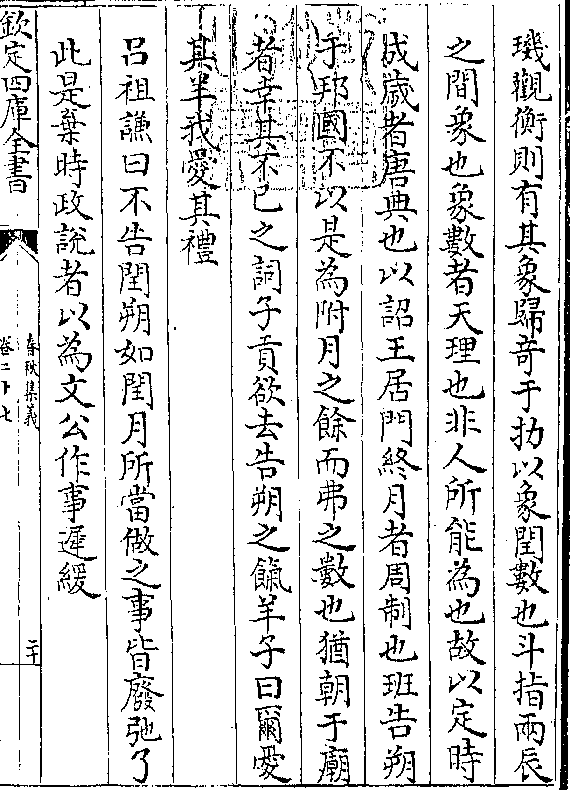 璣觀衡則有其象歸竒于扐以象閏數也斗指兩辰
之間象也象數者天理也非人所能為也故以定時
成歲者唐典也以詔王居門終月者周制也班告朔
于邦國不以是為附月之餘而弗之數也猶朝于廟
者幸其不已之詞子貢欲去告朔之餼羊子曰爾愛
其羊我愛其禮
吕祖謙曰不告閏朔如閏月所當做之事皆廢弛了
此是棄時政說者以為文公作事遲緩
欽定四庫全書
春秋集義
卷二十七
二十